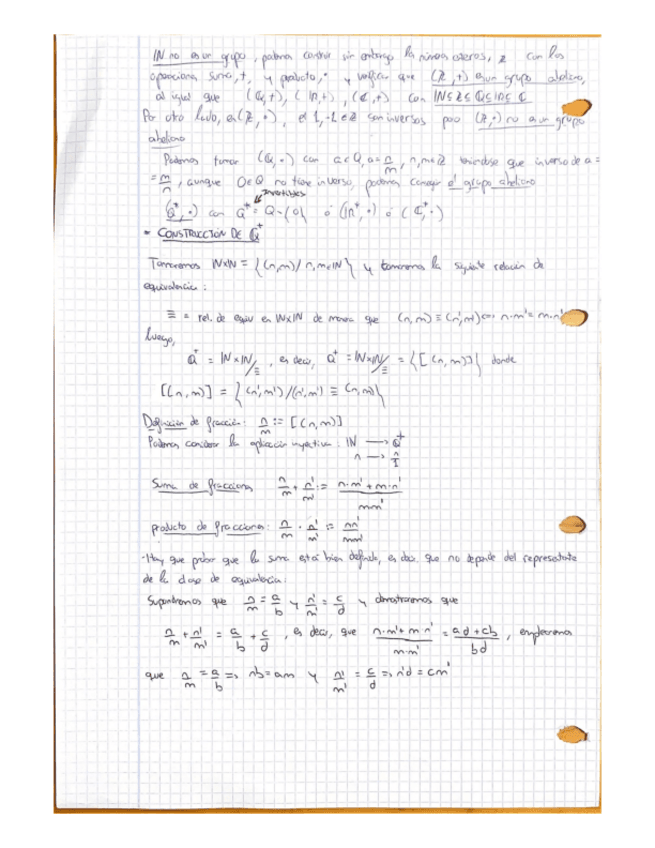 IN no es un grupo, podemos construir sin embargo los números enteros, Z con las
operaciones suma, +, y producto, · y verificar que (Z, +) es un grupo abeliano,
al igual que (Q, +), (IR, +), (C, +) con IN ⊆ Z ⊆ Q ⊆ IR ⊆ C
Por otro lado, en (Z, ·), el 1, -1 ∈ Z son inversos pero (Z, ·) no es un grupo
abeliano
Podemos tomar (Q, ·) con a ∈ Q, a = n/m, n, m ∈ Z teniéndose que inverso de a =
= m/n, aunque 0 ∈ Q no tiene inverso, podemos conseguir el grupo abeliano
invertibles
(Q⁺, ·) con Q⁺ = Q - {0} ó (IR⁺, ·) ó (C⁺, ·)
- CONSTRUCCION DE Q⁺
Tomaremos IN×IN = {(n,m) / n, m ∈ IN} y tomaremos la siguiente relación de
equivalencia:
≡ = rel. de equiv en IN×IN de manera que (n,m) ≡ (n',m') <=> n·m' = m·n'
luego,
Q⁺ = IN×IN/≡, es decir, Q⁺ = IN×IN/≡ = {[(n,m)]} donde
[(n,m)] = {(n',m') / (n',m') ≡ (n,m)}
Definición de fracción: n/m := [(n,m)]
Podemos considerar la aplicación inyectiva: IN → Q⁺
n → n/1
Suma de fracciones n/m + n'/m' := (n·m' + m·n')/mm'
producto de fracciones: n/m · n'/m' := nn'/mm'
-Hay que probar que la suma está bien definida, es decir, que no depende del representante
de la clase de equivalencia:
Supondremos que n/m = a/b y n'/m' = c/d y demostraremos que
n/m + n'/m' = a/b + c/d, es decir, que (n·m' + m·n')/(m·m') = (ad + cb)/bd, emplearemos
que n/m = a/b => nb = am y n'/m' = c/d => n'd = cm'